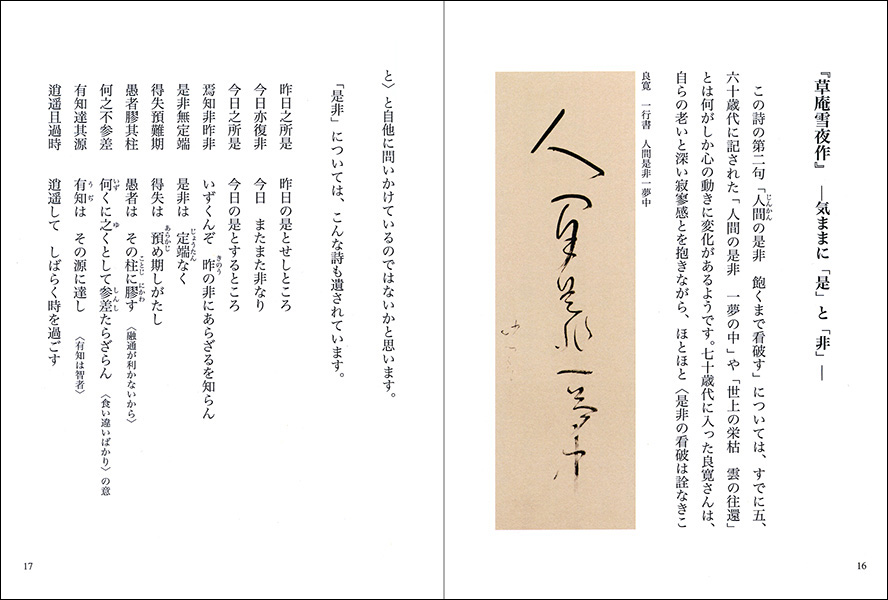 『草庵雪夜作』 ―気ままに「是」と「非」―
この詩の第二句「人間の是非 飽くまで看破す」については、すでに五、
じんかん
六十歳代に記された「人間の是非 一夢の中」や「世上の栄枯 雲の往還」
とは何がしか心の動きに変化があるようです。七十歳代に入った良寛さんは、
自らの老いと深い寂寥感とを抱きながら、ほとほと〈是非の看破は詮なきこ
良寛 一行書 人間是非一夢中
人間是非一夢中
16
と〉と自他に問いかけているのではないかと思います。
「是非」については、こんな詩も遺されています。
昨日之所是 昨日の是とせしところ
今日亦復非 今日 またまた非なり
今日之所是 今日の是とするところ
焉知非昨非 いずくんぞ 昨の非にあらざるを知らん
きのう
是非無定端 是非は 定端なく
じょうたん
得失預難期 得失は 預め期しがたし
あらかじ
愚者膠其柱 愚者は その柱に膠す 〈融通が利かないから〉
ことじ にかわ
何之不参差 何くに之くとして参差たらざらん 〈食い違いばかり〉の意
いず ゆ しんし
有知達其源 有知は その源に達し 〈有知は智者〉
うぢ
逍遥且過時 逍遥して しばらく時を過ごす
17